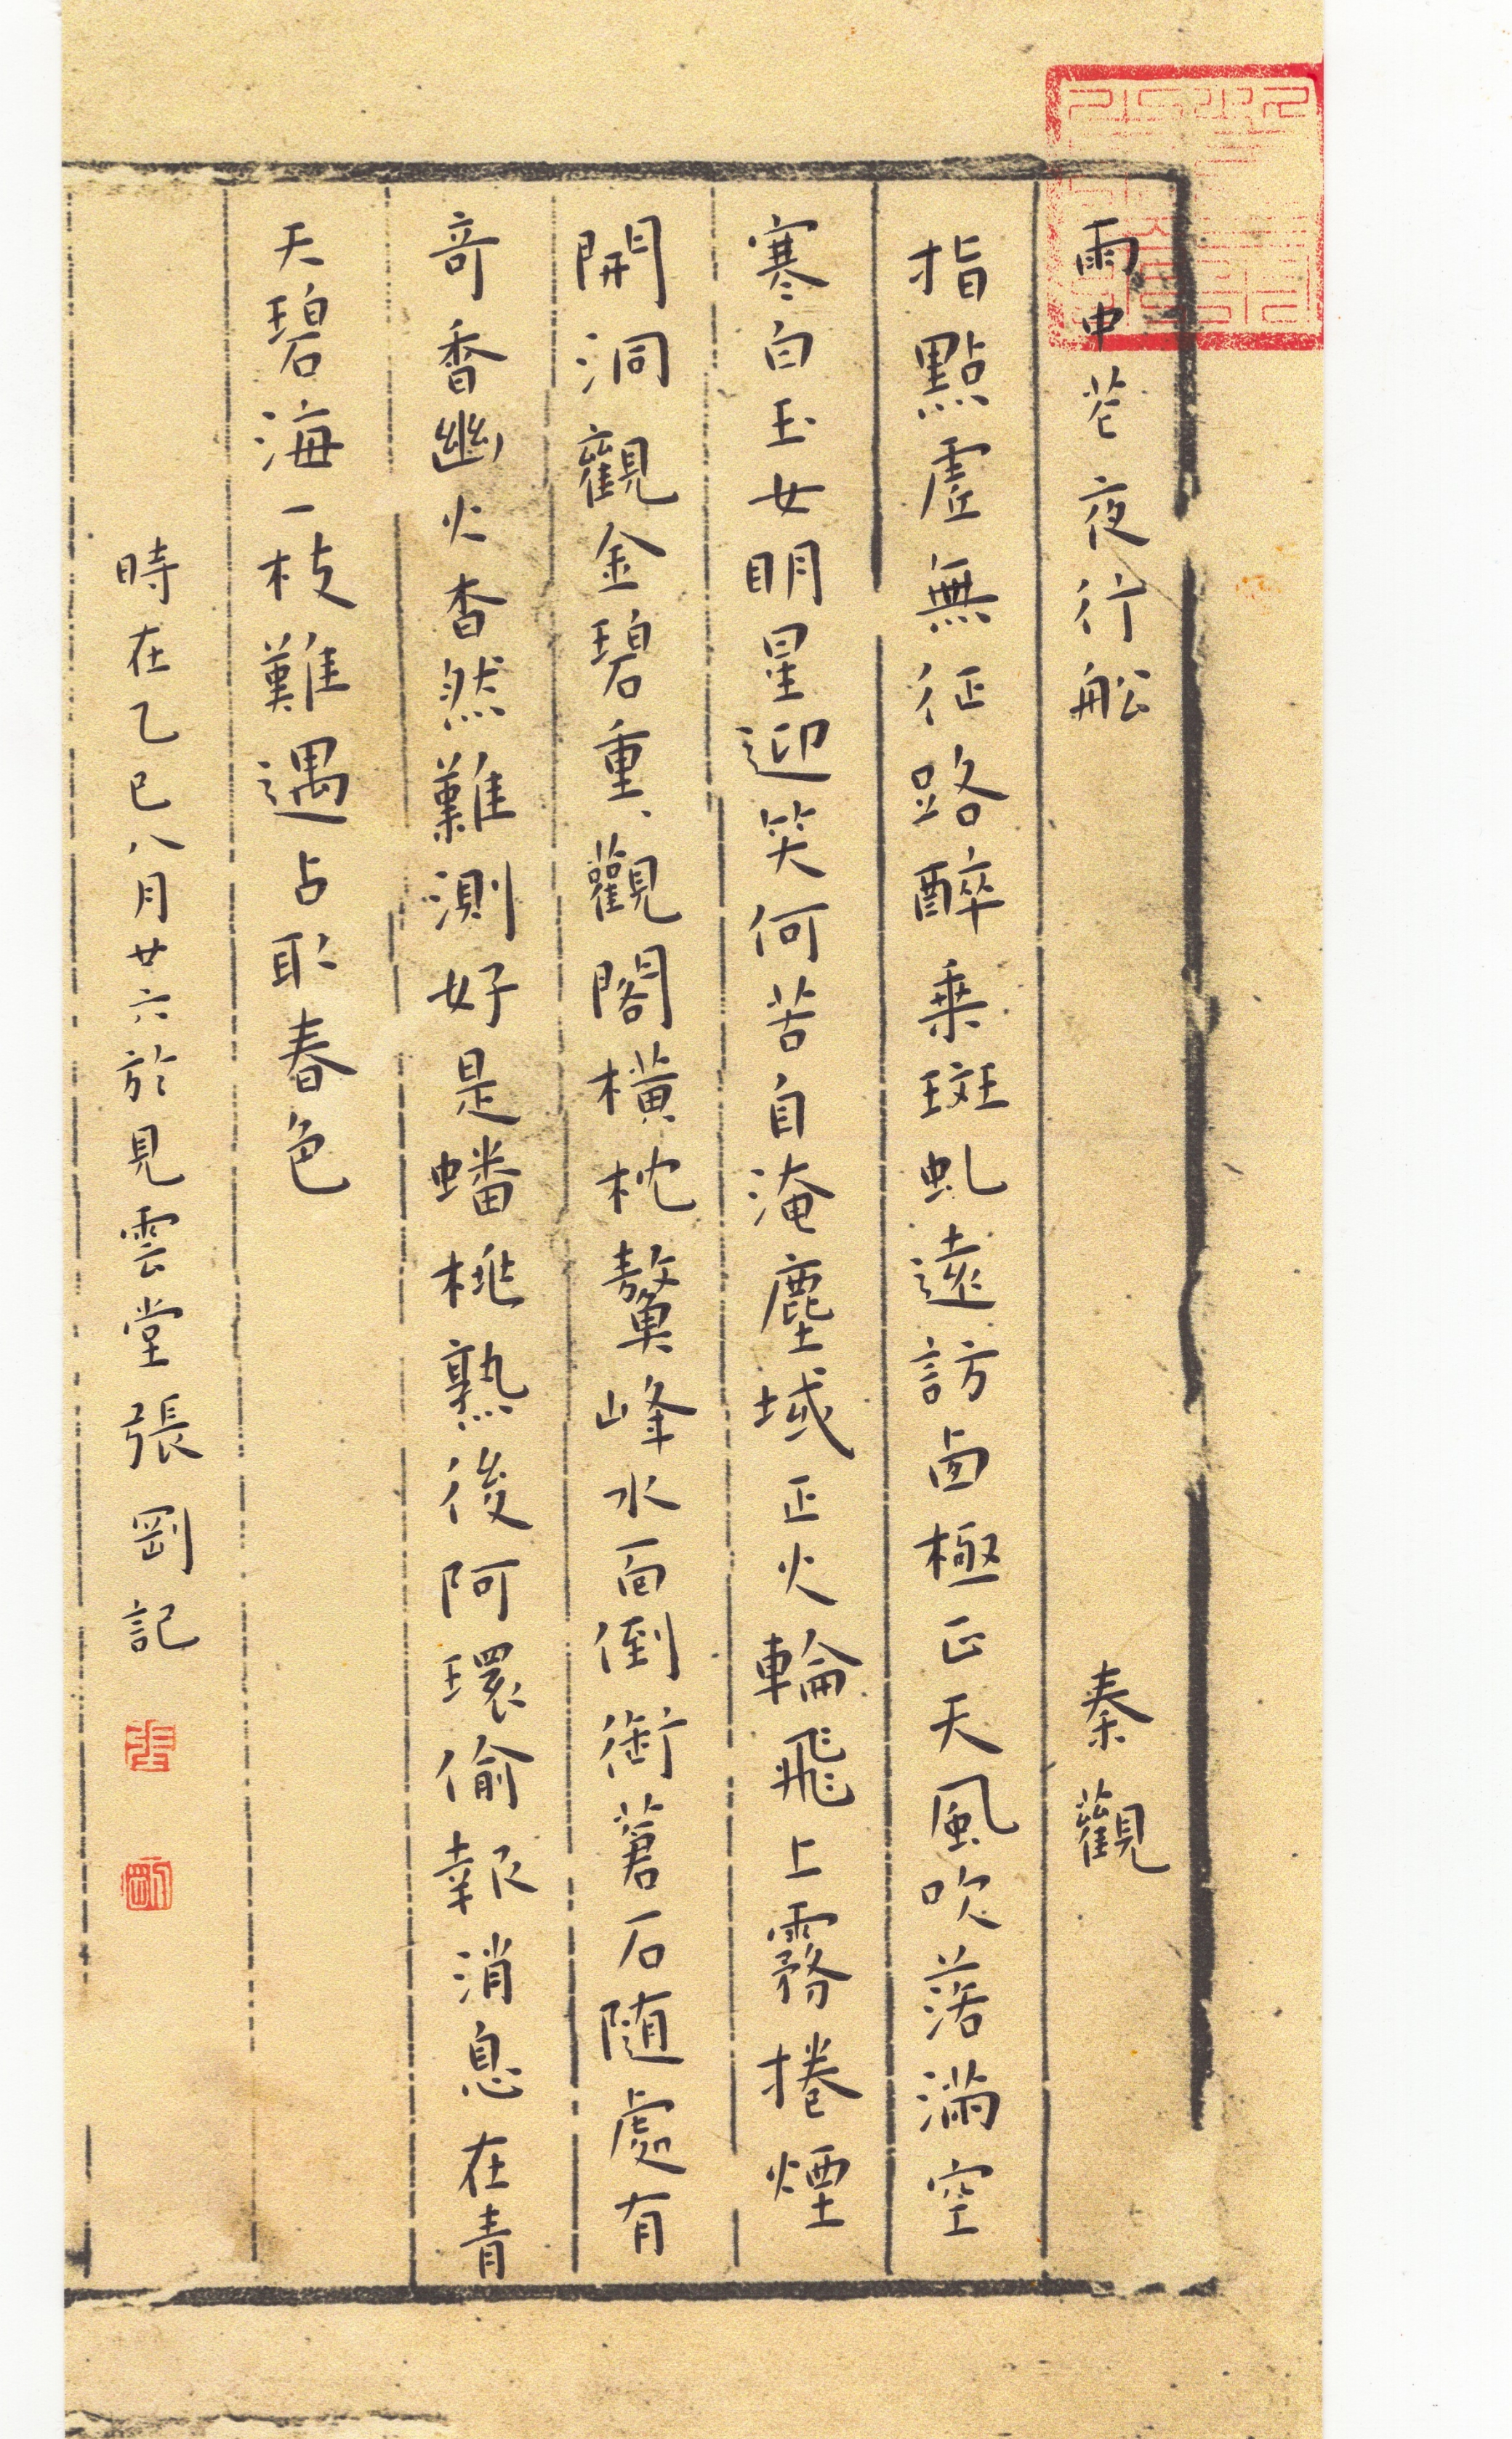 雨中花 夜行船 秦觀
指點虛無征路醉乘斑虬遠訪西極正天風吹落滿空
寒白玉女明星迎笑何苦自淹塵域正火輪飛上霧捲煙
開洞觀金碧重、觀閣橫枕鰲峰水面倒銜蒼石隨處有
奇香幽火杳然難測好是蟠桃熟後阿環偷報消息在青
天碧海一枝難遇占取春色
時在乙巳八月廿六於見雲堂張剛記